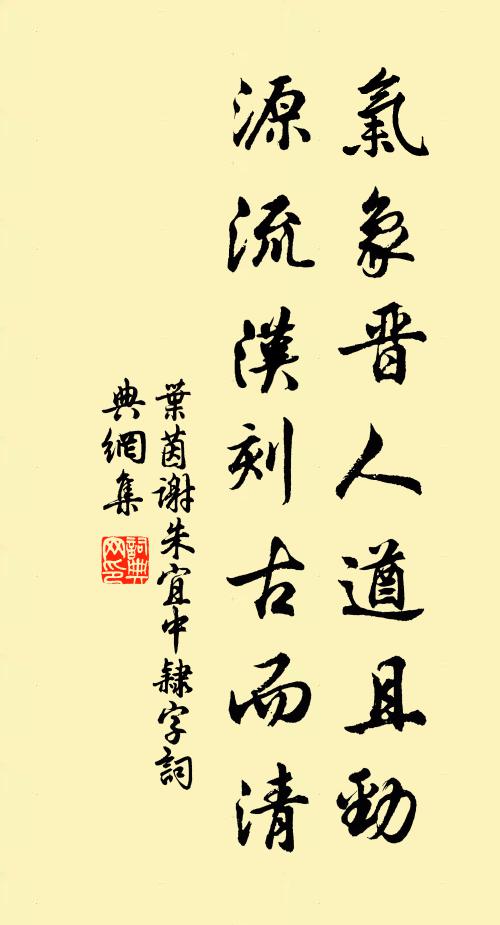 氣象晋人遒且勁
源流漢刻古而清
葉茵謝朱宜中隸字詞
典網集
詞典
网印